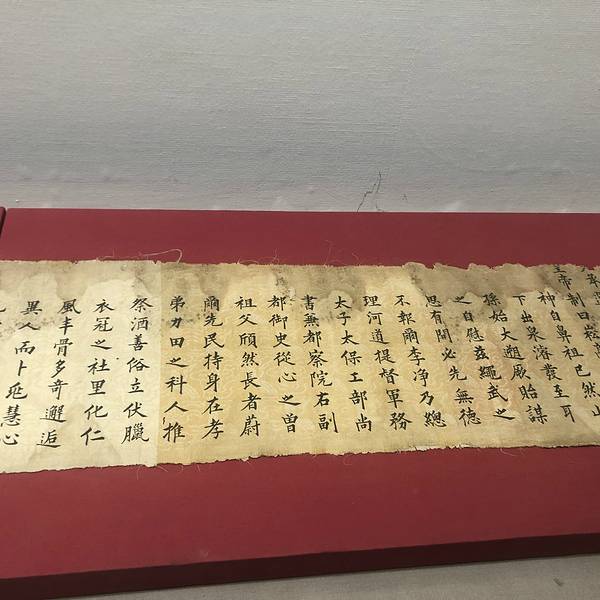 皇帝制曰崧
神自鼻祖已然山
下出泉濬發至耳
孫始大遡厥貽謀
之自慰茲繩武之
思有開必先無德
不報爾李淨乃總
理河道提督軍務
太子太保工部尚
書兼都察院右副
都御史從心之曾
祖父頎然長者蔚
爾先民持身在孝
弟力田之科人推
祭酒善俗立伏臘
衣冠之社里化仁
風丰骨多奇邂逅
異人而卜兆慧心